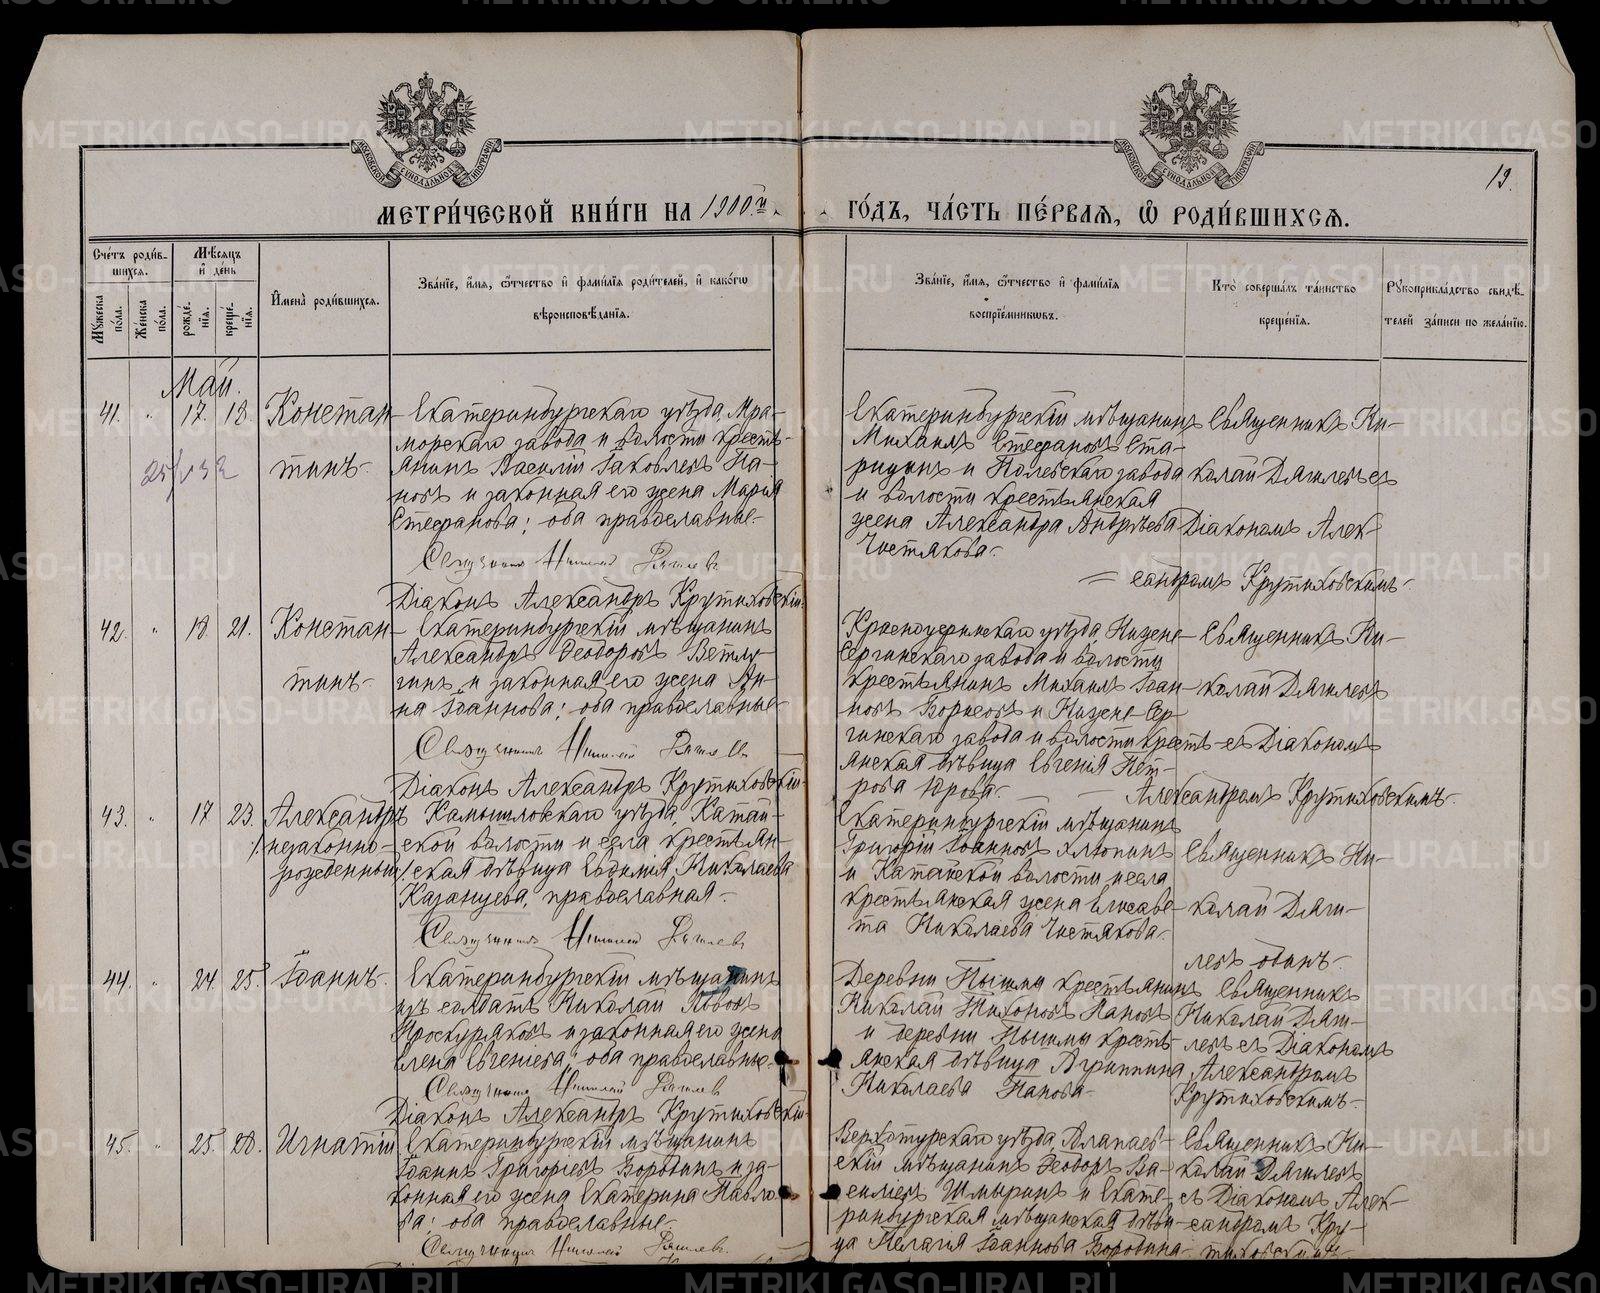 19.
МЕТРИ́ЧЕСКОЙ КНИ́ГИ НА 1900.й ГО́ДЪ, ЧА́СТЬ ПЕ́РВАѦ, Ѡ҆ РОДИ́ВШИХСѦ.
Сче́тъ роди́в-
шихся.
Мѣ́сяцъ
и҆ де́нь
Мꙋ́жеска по́ла.
Же́нска по́ла.
рожде́-
нїя.
креще́-
нїя.
И҆мена̀ роди́вшихся.
Зва́нїе, и҆́мя, ѻ҆́тчество и҆ фами́лїя роди́телей, и҆ како́гѡ
вѣроисповѣ́данїя.
Зва́нїе, и҆́мя, ѻ҆́тчество и҆ фами́лїя
воспрїе́мникѡвъ.
Кто̀ соверша́лъ та́инство
креще́нїя.
Рꙋкоприкла́дство свидѣ́-
телей за́писи по жела́нїю.
Май.
41. " 17. 18. Констан-
тинъ.
Екатеринбургскаго уѣзда, Мра-
морскаго завода и волости кресть-
янинъ Василій Іаковлевъ Па-
новъ и законная его жена Марія
Стефанова; оба православные.
Священникъ Николай Дягилевъ
Діаконъ Александръ Крутиховскій.
Екатеринбургскій мѣщанинъ
Михаилъ Стефановъ Ста-
рицынъ и Полевскаго завода
и волости крестьянская
жена Александра Андрѣева
Чистякова.
Священникъ Ни-
колай Дягилевъ съ
Діакономъ Алек-
= сандромъ Крутиховскимъ.
42. " 18. 21. Констан-
тинъ.
Екатеринбургскій мѣщанинъ
Александръ Ѳеодоровъ Ветлу-
гинъ и законная его жена Ан-
на Іоаннова; оба православные.
Священникъ Николай Дягилевъ
Діаконъ Александръ Крутиховскій.
Красноуфимскаго уѣзда, Низене-
Сергинскаго завода и волости
крестьянинъ Михаилъ Іоан-
новъ Борисовъ и Низене-Сер-
гинскаго завода и волости кресть-
янская дѣвица Евгенія Пет-
рова Юрова.
Священникъ Ни-
колай Дягилевъ
съ Діакономъ
Александромъ Крутиховскимъ.
43. " 17 23. Александръ
/незаконно-
рожденный/
Камышловскаго уѣзда, Катай-
ской волости и села крестьян-
ская дѣвица Евдокія Николаева
Казанцева, православная.
Священникъ Николай Дягилевъ
Екатеринбургскій мѣщанинъ
Григорій Іоанновъ Хлюпинъ
и Катайской волости и села
крестьянская жена Елисаве-
та Николаева Чистякова.
Священникъ Ни-
колай Дяги-
левъ одинъ.
44. " 24. 25. Іоаннъ.
Екатеринбургскій мѣщанинъ
изъ солдатъ Николай Львовъ
Проскуряковъ и законная его жена
Елена Евгеніева; оба православные.
Священникъ Николай Дягилевъ
Діаконъ Александръ Крутиховскій.
Деревни Пышмы крестьянинъ
Николай Тихоновъ Пановъ
и деревни Пышмы кресть-
янская дѣвица Агриппина
Николаева Панова.
Священникъ
Николай Дяги-
левъ съ Діакономъ
Александромъ
Крутиховскимъ.
45. " 25. 28. Игнатій
Екатеринбургскій мѣщанинъ
Іоаннъ Григоріевъ Бородинъ и за-
конная его жена Екатерина Павло-
ва; оба православные.
Священникъ Николай Дягилевъ.
Верхотурскаго уѣзда, Алапаев-
скій мѣщанинъ Ѳеодоръ Ва-
силіевъ Шмыринъ и Екате-
ринбургская мѣщанская дѣви-
ца Пелагія Іоаннова Бородина.
Священникъ Ни-
колай Дягилевъ
съ Діакономъ Алек-
сандромъ Кру-
тиховскимъ.
METRIKI.GASO-URAL.RU